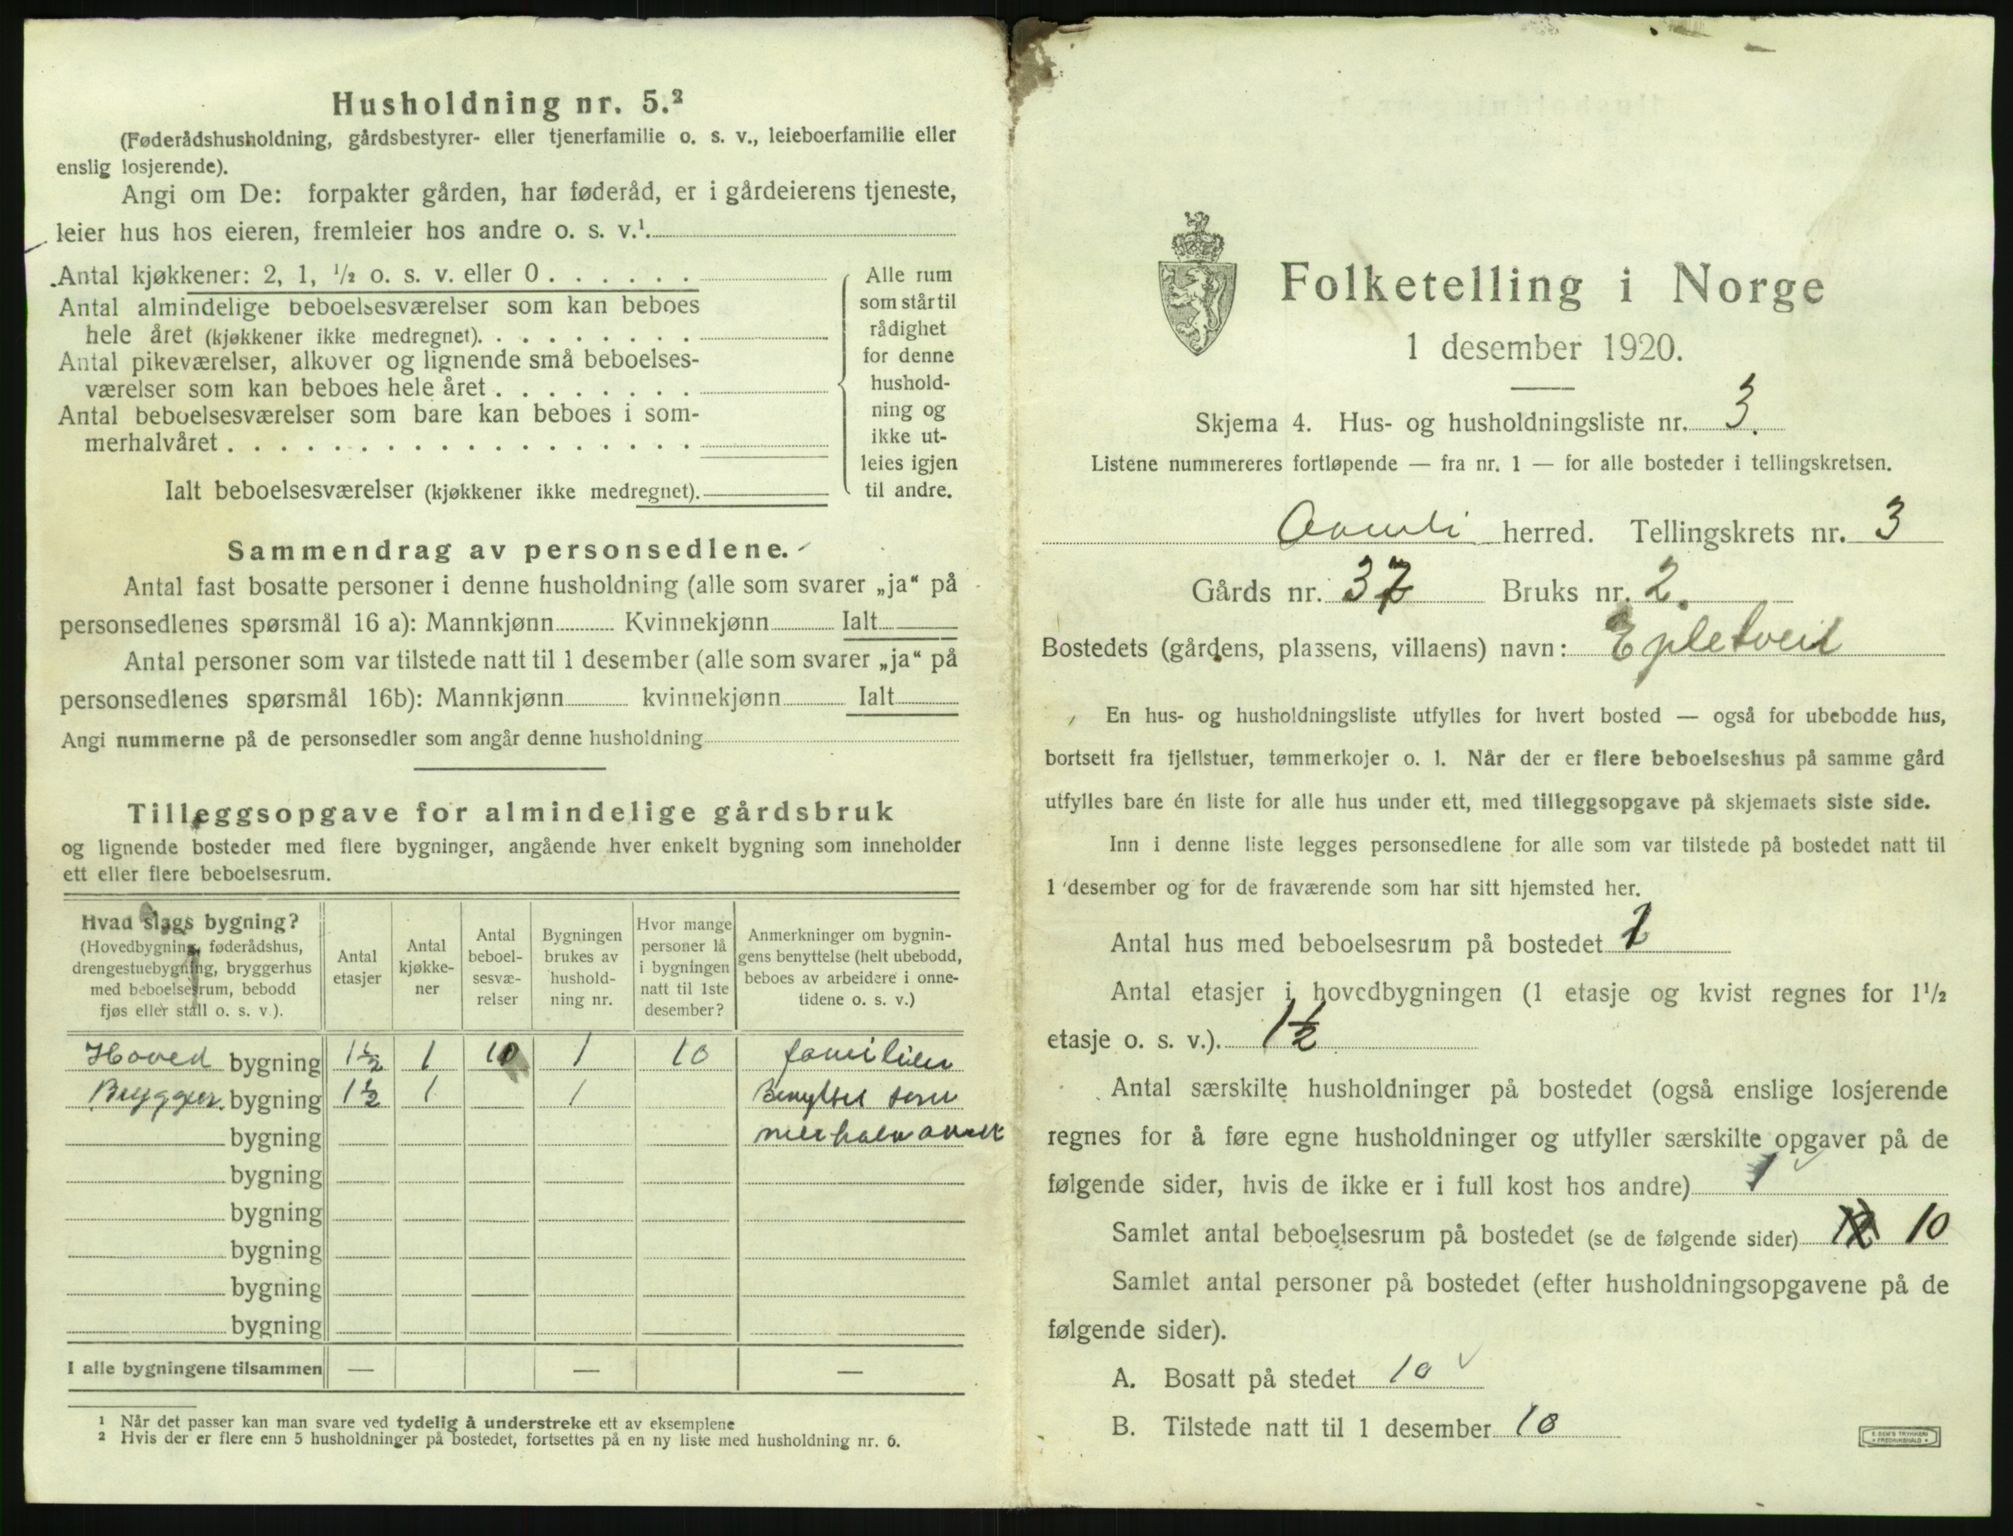 Husholdning nr. 5.²
(Føderådshusholdning, gårdsbestyrer- eller tjenerfamilie o. s. v., leieboerfamilie eller
enslig losjerende).
Angi om De: forpakter gården, har føderåd, er i gårdeierens tjeneste,
leier hus hos eieren, fremleier hos andre o. s. v.¹.
Antal kjøkkener: 2, 1, ½ o. s. v. eller 0 . . . . . .
Antal almindelige beboelsesværelser som kan beboes
hele året (kjøkkener ikke medregnet). . . . . . . . .
Antal pikeværelser, alkover og lignende små beboelses-
værelser som kan beboes hele året . . . . . . . .
Antal beboelsesværelser som bare kan beboes i som-
merhalvåret . . . . . . . . . . . . . . . . . .
Ialt beboelsesværelser (kjøkkener ikke medregnet).
Alle rum
som står til
rådighet
for denne
hushold-
ning og
ikke ut-
leies igjen
til andre.
Sammendrag av personsedlene.
Antal fast bosatte personer i denne husholdning (alle som svarer „ja“ på
personsedlenes spørsmål 16 a): Mannkjønn Kvinnekjønn Ialt
Antal personer som var tilstede natt til 1 desember (alle som svarer „ja“ på
personsedlenes spørsmål 16b): Mannkjønn kvinnekjønn Ialt
Angi nummerne på de personsedler som angår denne husholdning
Tilleggsopgave for almindelige gårdsbruk
og lignende bosteder med flere bygninger, angående hver enkelt bygning som inneholder
ett eller flere beboelsesrum.
Hvad slags bygning?
(Hovedbygning, føderådshus,
drengestuebygning, bryggerhus
med beboelsesrum, bebodd
fjøs eller stall o. s. v.).
Antal
etasjer
Antal
kjøkke-
ner
Antal
beboel-
sesvæ-
relser
Bygningen
brukes av
hushold-
ning nr.
Hvor mange
personer lå
i bygningen
natt til 1ste
desember?
Anmerkninger om bygnin-
gens benyttelse (helt ubebodd,
beboes av arbeidere i onne-
tidene o. s. v.)
Hoved bygning 1½ 1 10 1 10 familien
Brygger. bygning 1½ 1 1 Benyttet som
bygning merhalvaaret
bygning
bygning
bygning
bygning
bygning
I alle bygningene tilsammen — — —
¹ Når det passer kan man svare ved tydelig å understreke ett av eksemplene
² Hvis der er flere enn 5 husholdninger på bostedet, fortsettes på en ny liste med husholdning nr. 6.
Folketelling i Norge
1 desember 1920.
Skjema 4. Hus- og husholdningsliste nr. 3.
Listene nummereres fortløpende — fra nr. 1 — for alle bosteder i tellingskretsen.
Aamli herred. Tellingskrets nr. 3
Gårds nr. 37 Bruks nr. 2.
Bostedets (gårdens, plassens, villaens) navn: Epletveit
En hus- og husholdningsliste utfylles for hvert bosted — også for ubebodde hus,
bortsett fra fjellstuer, tømmerkojer o. l. Når der er flere beboelseshus på samme gård
utfylles bare én liste for alle hus under ett, med tilleggsopgave på skjemaets siste side.
Inn i denne liste legges personsedlene for alle som var tilstede på bostedet natt til
1 desember og for de fraværende som har sitt hjemsted her.
Antal hus med beboelsesrum på bostedet
Antal etasjer i hovedbygningen (1 etasje og kvist regnes for 1½
etasje o. s. v.). 1½
Antal særskilte husholdninger på bostedet (også enslige losjerende
regnes for å føre egne husholdninger og utfyller særskilte opgaver på de
følgende sider, hvis de ikke er i full kost hos andre) 1
Samlet antal beboelsesrum på bostedet (se de følgende sider) 12 10
Samlet antal personer på bostedet (efter husholdningsopgavene på de
følgende sider).
A. Bosatt på stedet 10
B. Tilstede natt til 1 desember 10
E. SEM'S TRYKKERI
FREDRIKSHALD